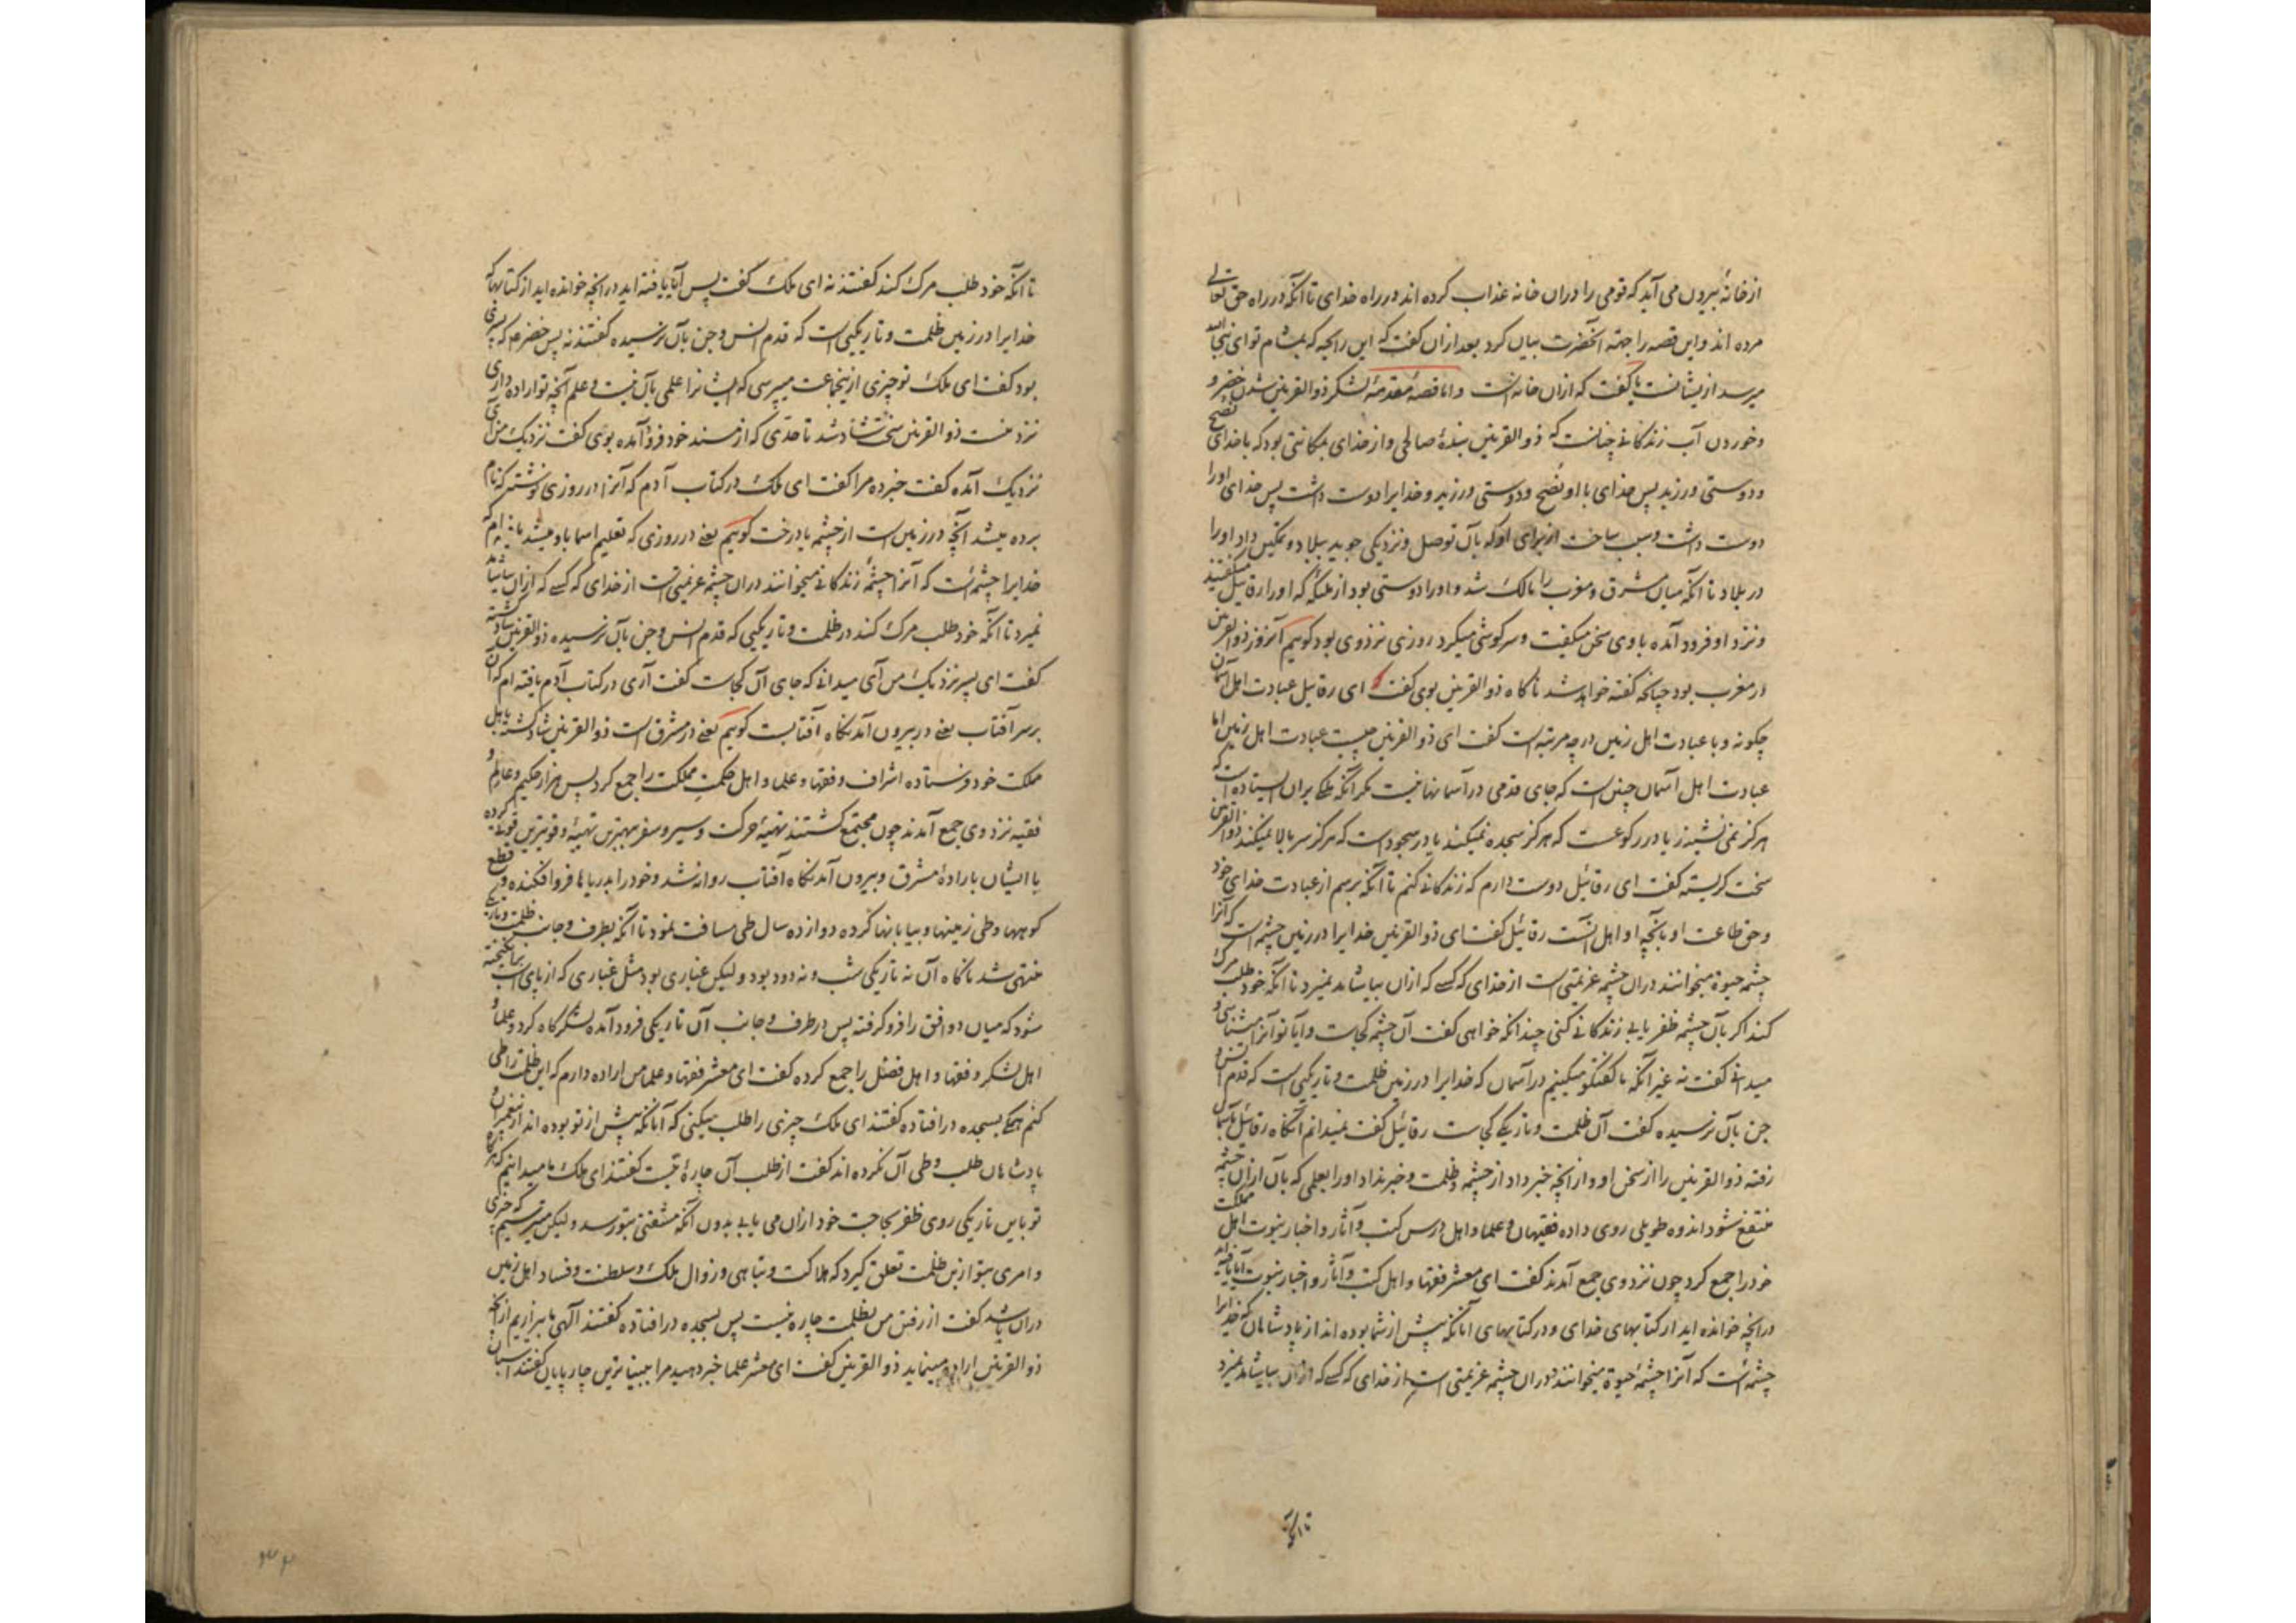 از خانهٔ بیرون می آید که قومی را دران خانه عذاب کرده اند در راه خدای تا آنکه در راه حق تعالی
مرده اند و این قصه را جهة آنحضرت بیان کرد بعد ازان گفت که این رایحه که بمشام تو ای نبی الله
میرسد از یشانست یا گفت که ازان خانه است و اما قصهٔ مقدمهٔ لشکر ذوالقرنین شدن خضر و
و خوردن آب زندگانی چنانست که ذوالقرنین بندهٔ صالحی و از خدای بمکانتی بود که با خدای نصح
و دوستی ورزید پس خدای با او نصح و دوستی ورزید و خدایرا دوست داشت پس خدای او را
دوست داشت و سبب ساخت از برای او که بآن توصل و نزدیکی جوید ببلاد و تمکین داد او را
در بلاد تا آنکه میان مشرق و مغرب را مالک شد و او را دوستی بود از ملئکه که او را رقائیل میگفتند
و نزد او فرود آمده با وی سخن میگفت و سرگوشی میکرد روزی نزد وی بود گوییم آنروز ذوالقرنین
در مغرب بود چنانکه گفته خواهد شد ناگاه ذوالقرنین بوی گفت که ای رقائیل عبادت اهل آسمان
چگونه و با عبادت اهل زمین در چه مرتبه است گفت ای ذوالقرنین چیست عبادت اهل زمین اما
عبادت اهل آسمان چنین است که جای قدمی در آسمانها نیست مگر آنکه ملکی بران ایستاده است که
هرگز نمی نشیند یا در رکوعست که هرگز سجده نمیکند یا در سجود است که هرگز سر بالا نمیکند ذوالقرنین
سخت گریسته گفت ای رقائیل دوست دارم که زندگانی کنم تا آنکه برسم از عبادت خدای خود
و حق طاعت او بآنچه او اهل آنست رقائیل گفت ای ذوالقرنین خدایرا در زمین چشمه است که آنرا
چشمه حیوة میخوانند دران چشمه عزیمتی است از خدای که کسی که ازان بیاشامد نمیرد تا آنکه خود طلب مرگ
کند اگر بآن چشمه ظفر یابی زندگانی کنی چندانکه خواهی گفت آن چشمه کجاست و آیا تو آنرا میشناسی و
میدانی گفت نه غیر آنکه ما گفتگو میکنیم در آسمان که خدایرا در زمین ظلمت و تاریکیی است که قدم انس و
جن بآن نرسیده گفت آن ظلمت و تاریکی کجاست رقائیل گفت نمیدانم آنگاه رقائیل بآسمان
رفته ذوالقرنین را از سخن او و از آنچه خبر داد از چشمه و ظلمت و خبر نداد او را بعلمی که بآن ازان چشمه
منتفع شود اندوه طویلی روی داده فقیهان و علما و اهل درس کتب و آثار و اخبار نبوت اهل مملکت
خود را جمع کرد چون نزد وی جمع آمدند گفت ای معشر فقها و اهل کتب و آثار و اخبار نبوت آیا یافته اید
در آنچه خوانده اید از کتابهای خدای و در کتابهای آنانکه پیش از شما بوده اند از پادشاهان که خدایرا
چشمه است که آنرا چشمهٔ حیوة میخوانند دران چشمه عزیمتی است از خدای که کسی که ازان بیاشامد نمیرد
تا آنکه
تا آنکه خود طلب مرگ کند گفتند نه ای ملک گفت پس آیا یافته اید در آنچه خوانده اید از کتابها که
خدایرا در زمین ظلمت و تاریکیی است که قدم انس و جن بآن نرسیده گفتند نه پس خضر م که پسری
بود گفت ای ملک تو چیزی ازینجماعت میپرسی که ایشانرا علمی بآن نیست و علم آنچه تو اراده داری
نزد منست ذوالقرنین سخت شاد شد تا حدی که از مسند خود فرود آمده بوی گفت نزدیک من آی
نزدیک آمده گفت خبر ده مرا گفت ای ملک در کتاب آدم که آنرا در روزی نوشتند که نام
برده میشد آنچه در زمین است از چشمه یا درخت گوییم یعنی در روزی که تعلیم اسما باو میشد یافته ام که
خدایرا چشمه است که آنرا چشمهٔ زندگانی میخوانند دران چشمه عزیمتی است از خدای که کسی که ازان بیاشامد
نمیرد تا آنکه خود طلب مرگ کند در ظلمت و تاریکیی که قدم انس و جن بآن نرسیده ذوالقرنین شاد گشته
گفت ای پسر نزدیک من آی میدانی که جای آن کجاست گفت آری در کتاب آدم یافته ام که آن
بر سر آفتاب یعنی در بیرون آمدنگاه آفتابست گوییم یعنی در مشرق است ذوالقرنین شاد گشته باهل
مملکت خود فرستاده اشراف و فقها و علما و اهل حکمت مملکت را جمع کرد پس هزار حکیم و عالم و
فقیه نزد وی جمع آمدند چون مجتمع گشتند تهیهٔ حرکت و سیر و سفر ببهترین تهیئه و قویترین قوت کرده
با ایشان بارادهٔ مشرق و بیرون آمدنگاه آفتاب روانه شد و خود را بدریاها فرو افکنده و قطع
کوهها و طی زمینها و بیابانها کرده دوازده سال طی مسافت نمود تا آنکه بطرف و جانب ظلمت و تاریکی
منتهی شد ناگاه آن نه تاریکی شب و نه دود بود و لیکن غباری بود مثل غباری که از پای اسب برانگیخته
شود که میان دو افق را فرو گرفته پس در طرف و جانب آن تاریکی فرود آمده لشکرگاه کرد و علما و
اهل لشکر و فقها و اهل فضل را جمع کرده گفت ای معشر فقها و علما من اراده دارم که این ظلمت را طی
کنم همگی بسجده در افتاده گفتند ای ملک چیزی را طلب میکنی که آنانکه پیش از تو بوده اند از پیغمبران و
پادشاهان طلب و طی آن نکرده اند گفت از طلب آن چارهٔ نیست گفتند ای ملک ما میدانیم که هرگاه
تو باین تاریکی روی ظفر بحاجت خود ازان می یابی بدون آنکه مشقتی بتو رسد و لیکن میترسیم که چیزی
و امری بتو ازین ظلمت تعلق گیرد که هلاکت و تباهی و زوال ملک و سلطنت و فساد اهل زمین
دران باشد گفت از رفتن من بظلمت چاره نیست پس بسجده در افتاده گفتند الهی ما بیزاریم از آنچه
ذوالقرنین اراده مینماید ذوالقرنین گفت ای معشر علما خبر دهید مرا ببیناترین چارپایان گفتند اسبان
۳۴